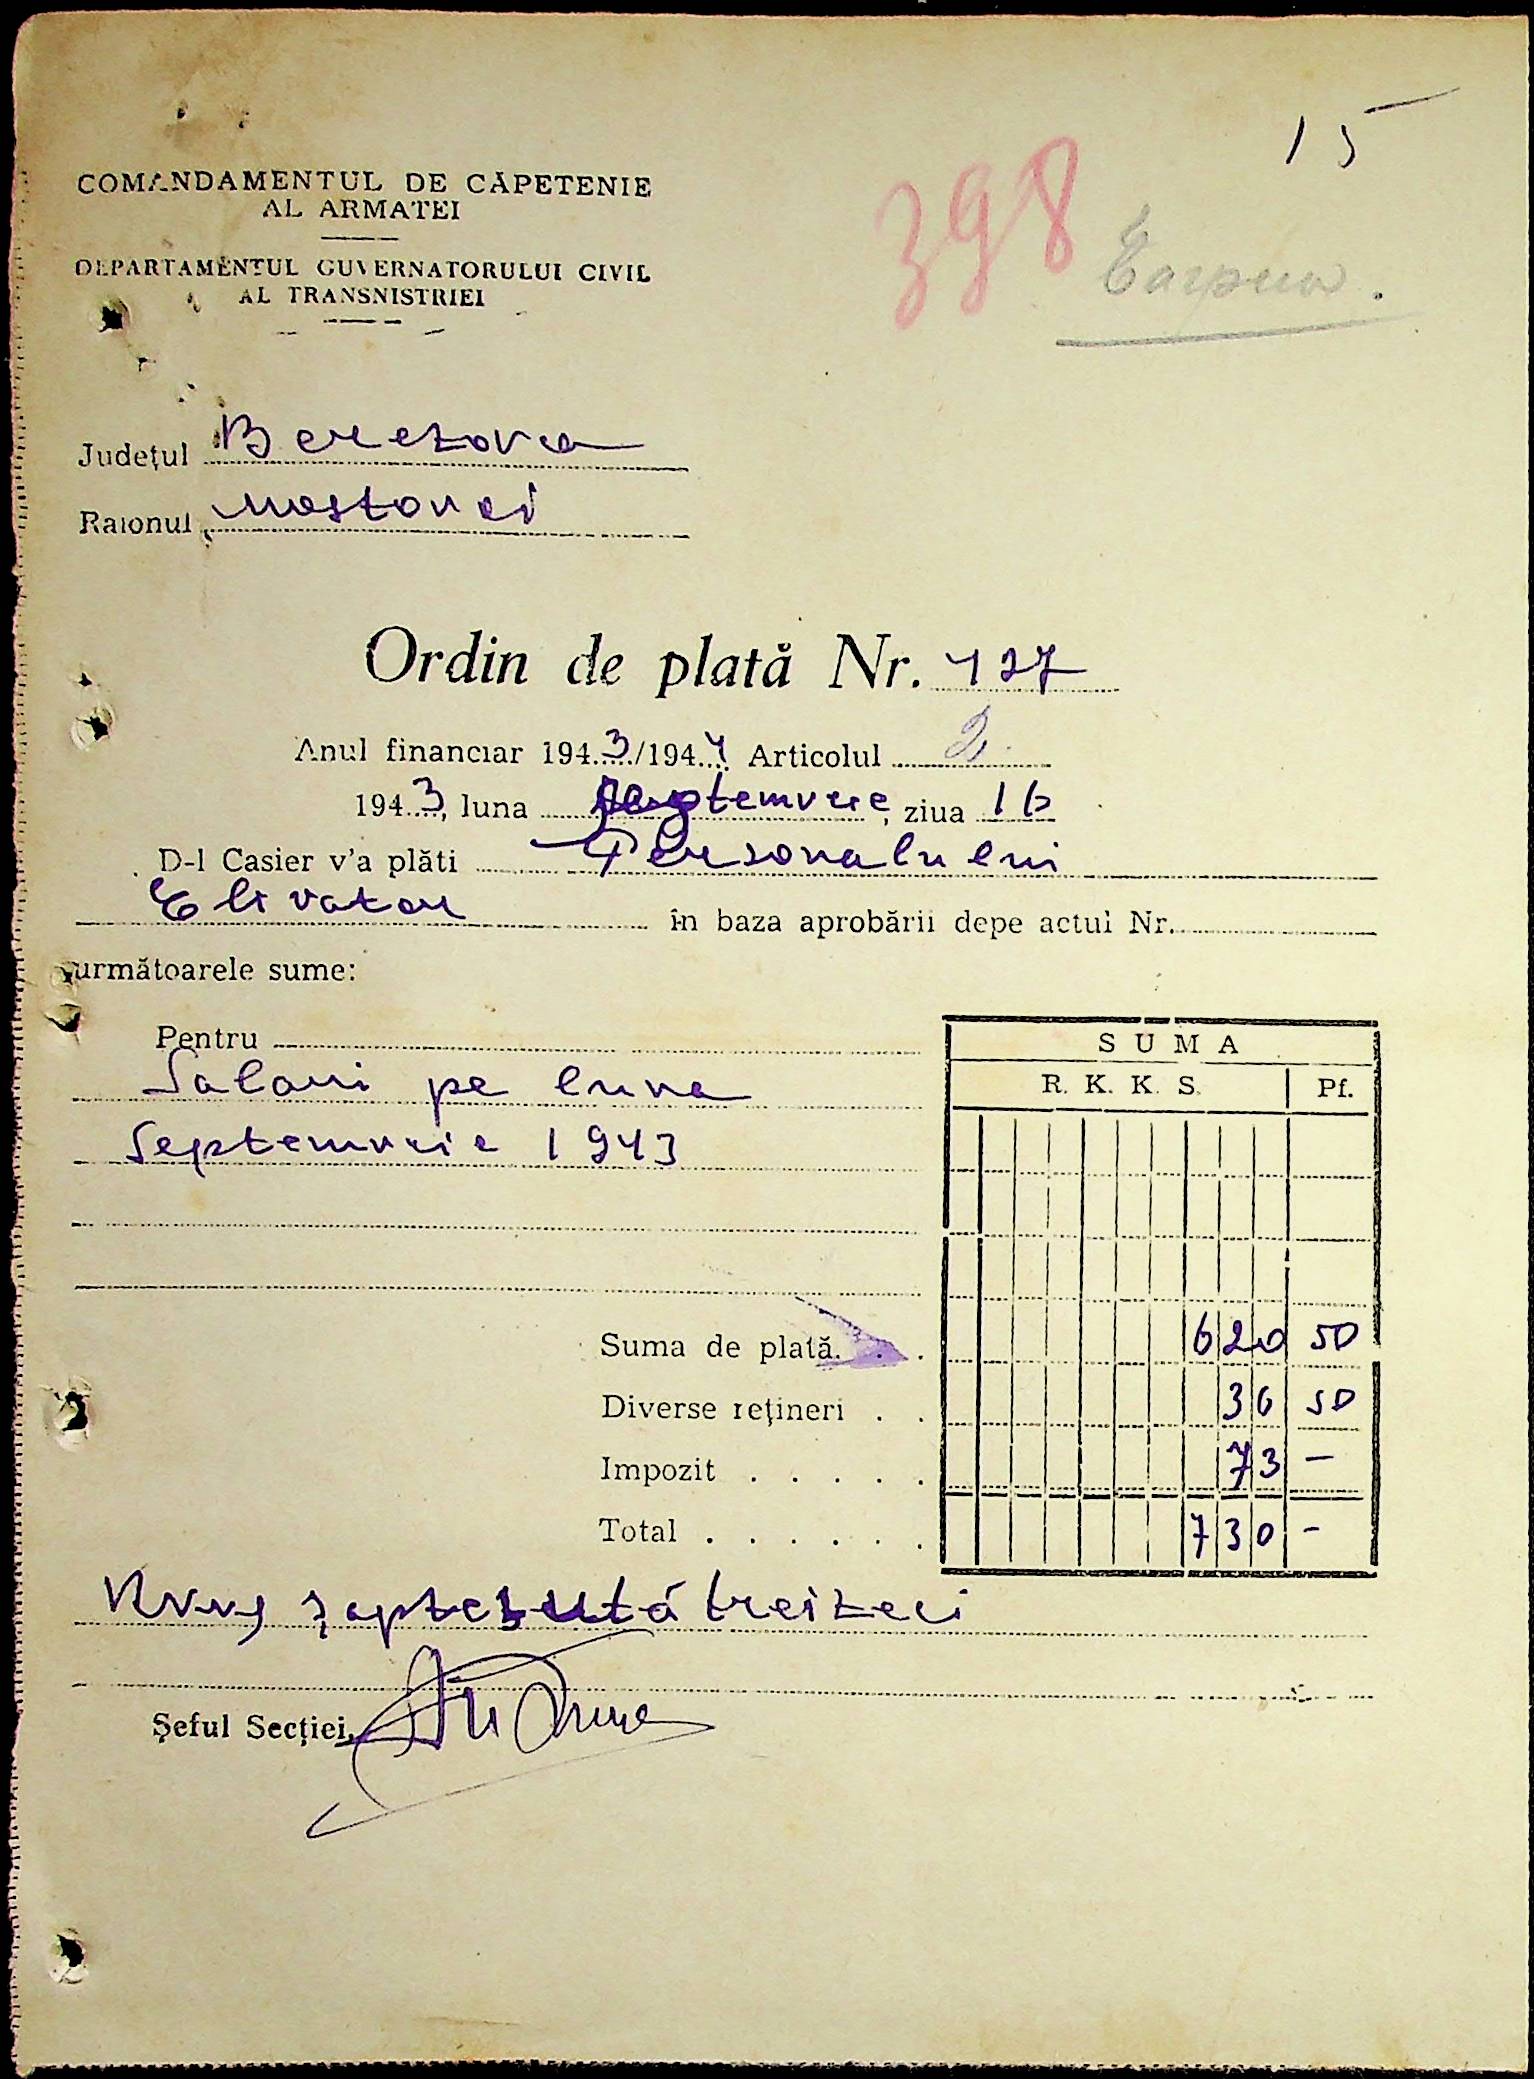 15
398
COMANDAMENTUL DE CĂPETENIE
AL ARMATEI
DEPARTAMENTUL GUVERNATORULUI CIVIL
AL TRANSNISTRIEI
Județul Berezovca
Raionul Mostovoi
Ordin de plată Nr. 127
Anul financiar 1943/1944 Articolul 2
1943, luna Septemvrie, ziua 16
D-l Casier v'a plăti Personalului
Elivator în baza aprobării depe actul Nr.
următoarele sume:
Pentru
Salarii pe luna
Septemvrie 1943
SUMA
R. K. K. S. Pf.
Suma de plată. . . 620 50
Diverse rețineri . . 36 50
Impozit . . . . . 73 —
Total . . . . . . 730 -
șaptesută treizeci
Șeful Secției,